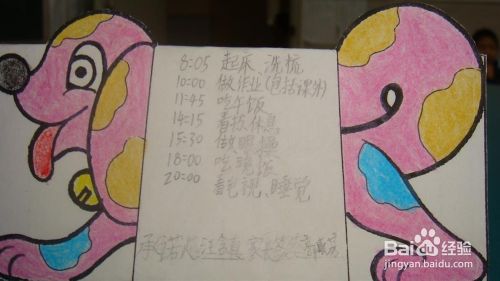 8:05 起床、洗梳
10:00 做作业(包括课外)
11:45 吃午饭
14:15 看报休息
15:30 做眼操
18:00 吃晚饭
20:00 看电视、睡觉
承诺人:汪鱼真 家长签
Baidu经验
jingyan.baidu.com